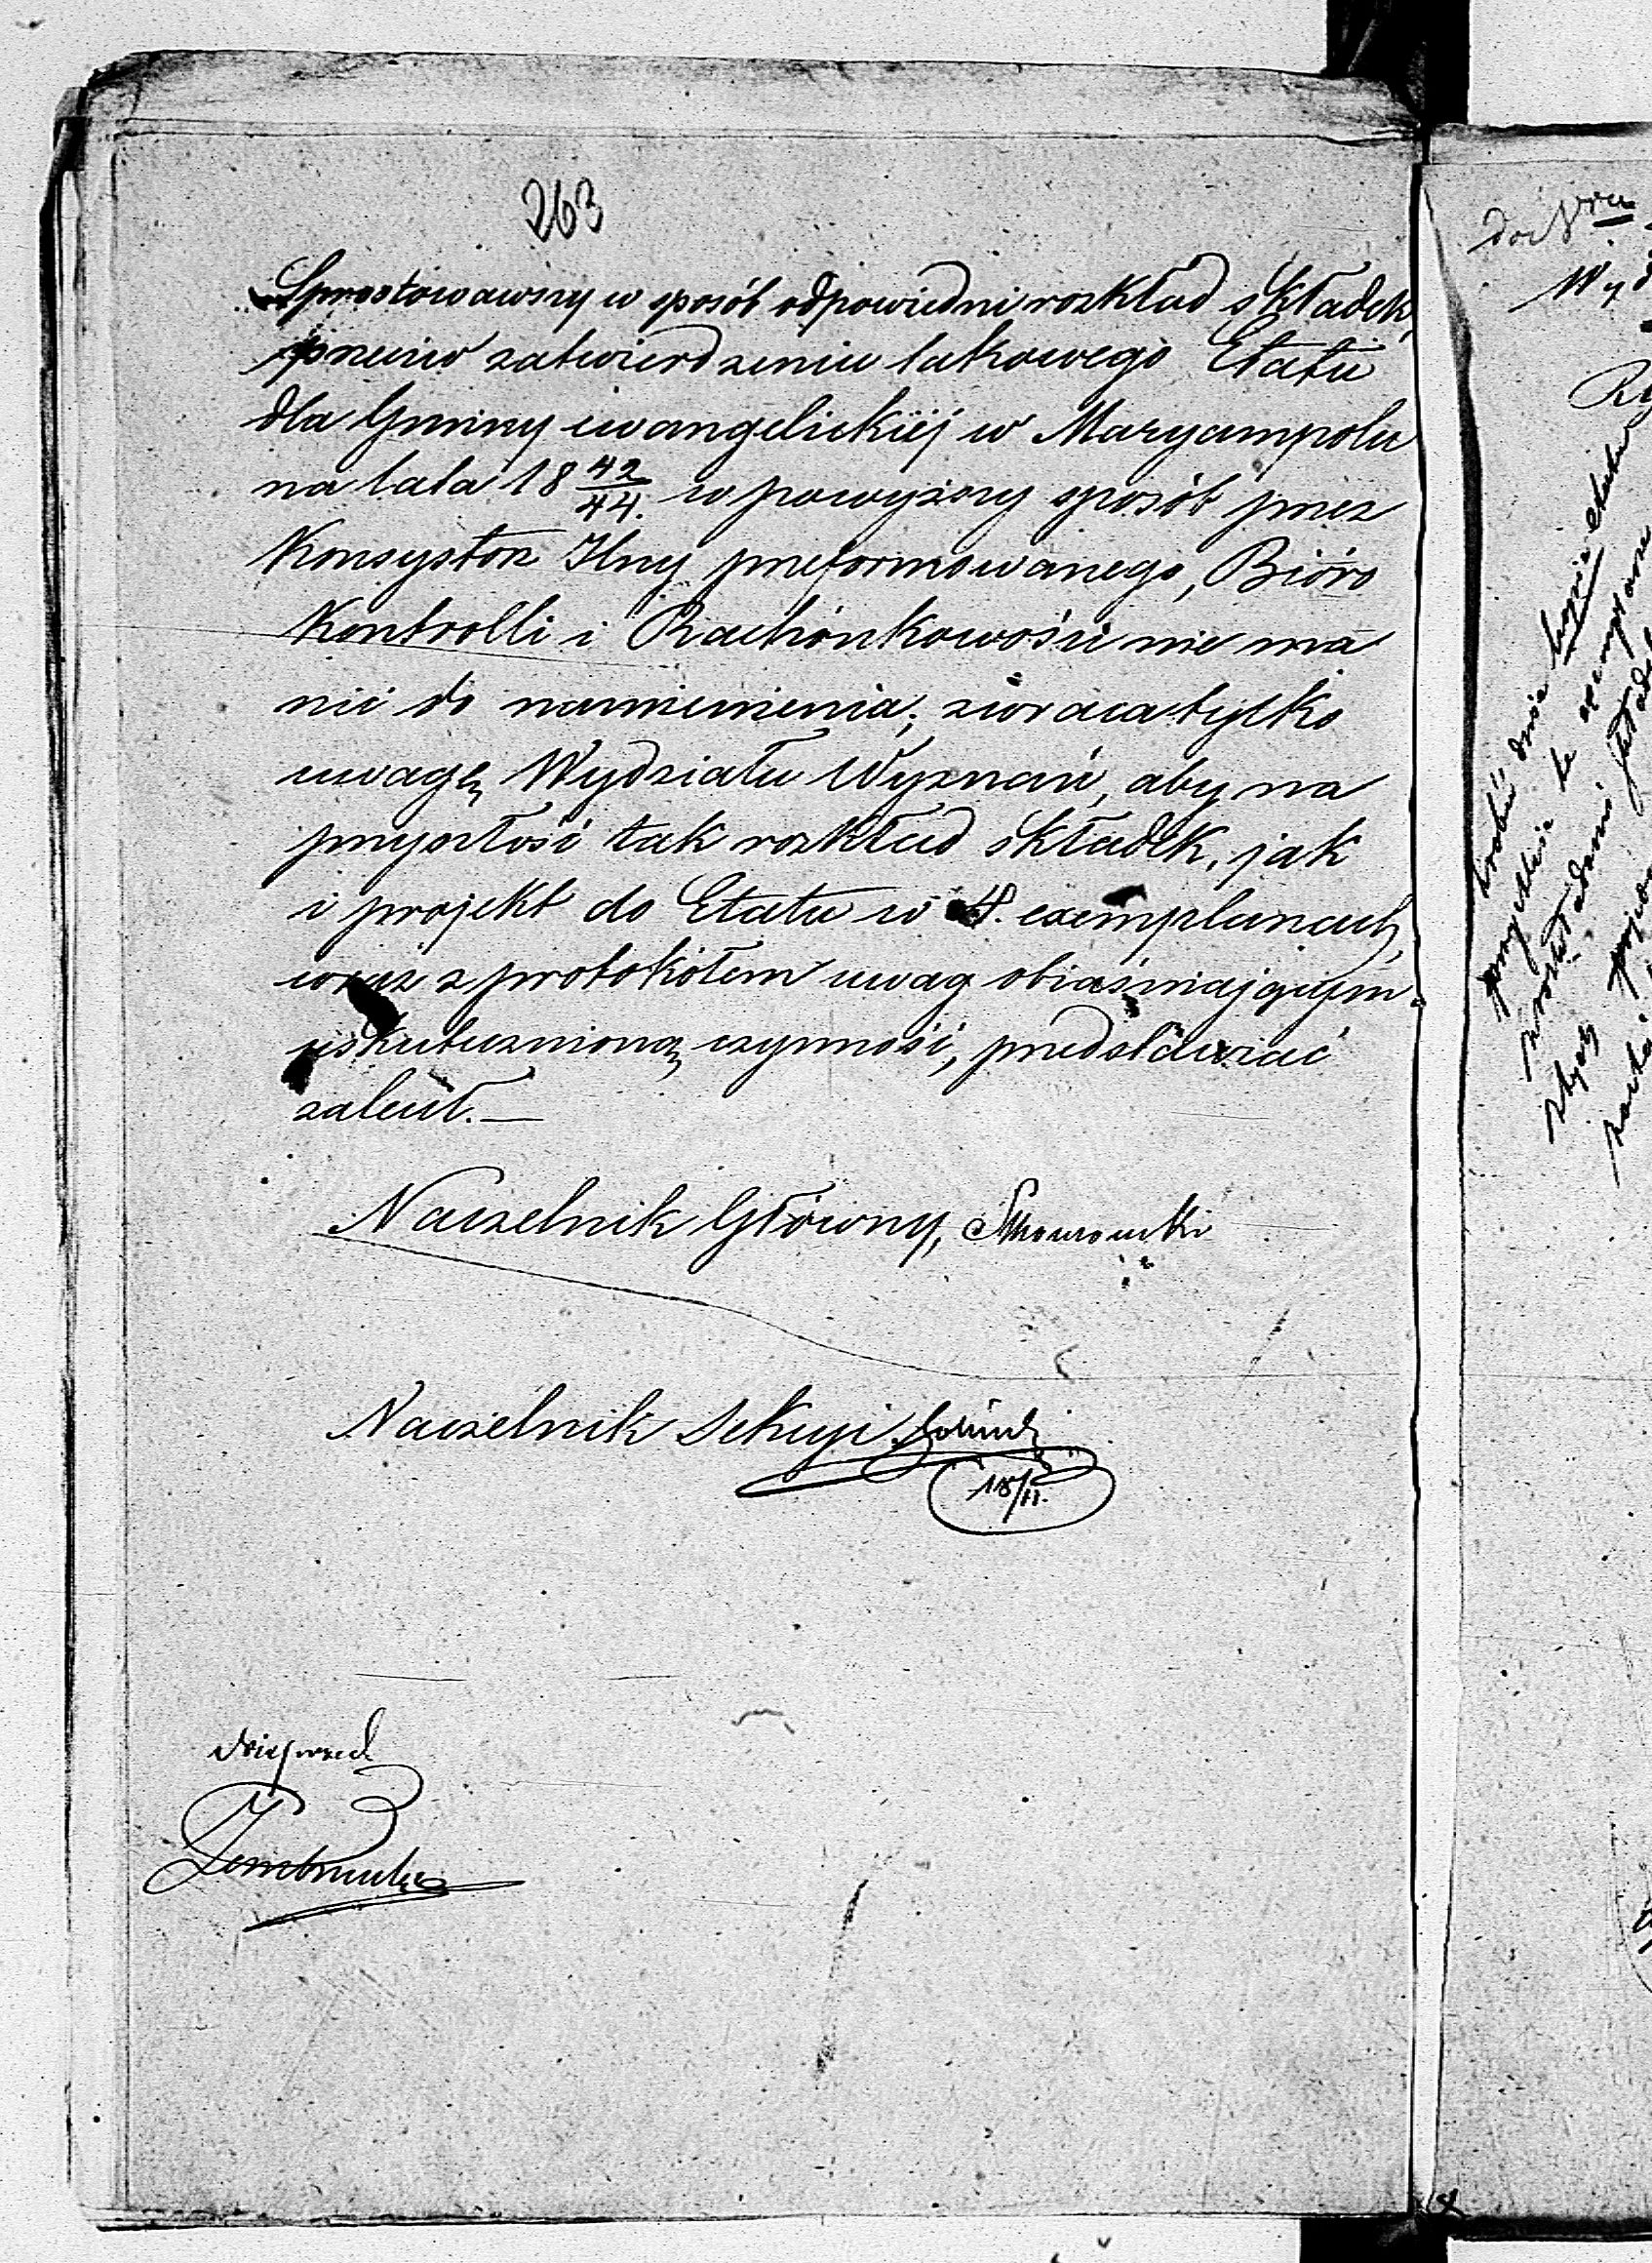 263
Sprostowawszy w sposób odpowiedni rozkład składek,
przeciw zatwierdzeniu takowego Etatu
dla Gminy ewangelickiéj w Maryampolu
na lata 18 42/44. w powyższy sposób przez
Konsystorz Jlny preformowanego, Bióro
Kontrolli i Rachónkowości nie ma
nic do namienienia; zwraca tylko
uwagę Wydziału Wyznań, aby na
przyszłość tak rozkład składek, jak
i projekt do Etatu w 4. exemplarzach,
wraz z protokółem uwag obiaśniającym
uskutecznioną czynność, przedstawiać
zalecił.—
Naczelnik Główny,
Naczelnik Sekcyi
18/11.
do Nru
Wyd
zrobić dwie kopie etatu
przyszłość te exemplarze